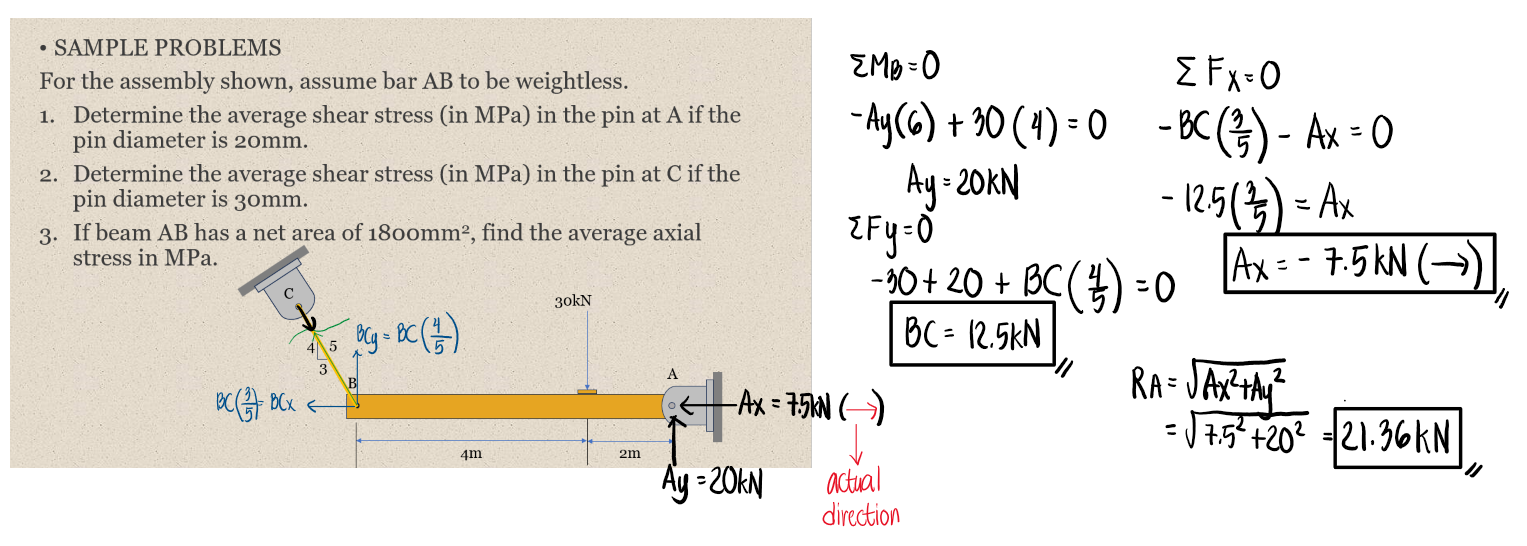 • SAMPLE PROBLEMS
For the assembly shown, assume bar AB to be weightless.
1. Determine the average shear stress (in MPa) in the pin at A if the
pin diameter is 20mm.
2. Determine the average shear stress (in MPa) in the pin at C if the
pin diameter is 30mm.
3. If beam AB has a net area of 1800mm², find the average axial
stress in MPa.
C
30kN
4 5
3
BCy = BC(4/5)
B
A
BC(3/5) = BCx
Ax = 7.5kN (→)
4m
2m
Ay = 20kN
actual
direction
ΣMB = 0
-Ay(6) + 30(4) = 0
Ay = 20kN
ΣFy = 0
-30 + 20 + BC(4/5) = 0
BC = 12.5kN
ΣFx = 0
-BC(3/5) - Ax = 0
-12.5(3/5) = Ax
Ax = - 7.5kN (→)
RA = √Ax²+Ay²
= √7.5²+20² = 21.36kN